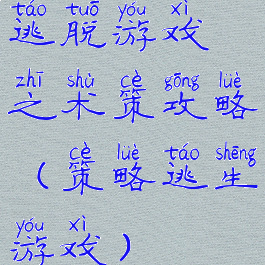 táo tuō yóu xì
逃脱游戏
zhī shù cè gōng lüè
之术策攻略
cè lüè táo shēng
（策略逃生
yóu xì
游戏）